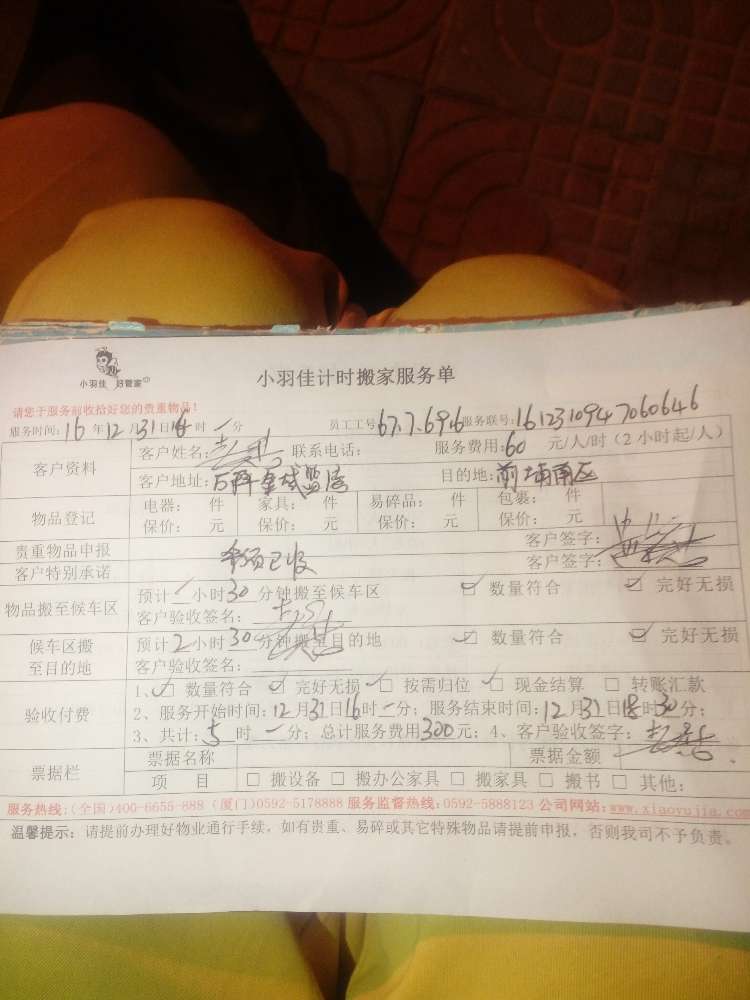 小羽佳 好管家
小羽佳计时搬家服务单
请您于服务前收拾好您的贵重物品!
服务时间:16年12月31日16时一分 员工工号:67.7.696 服务联号:1612310947060646
客户资料
客户姓名: 联系电话: 服务费用:60元/人/时(2小时起/人)
客户地址: 目的地:前埔南区
物品登记
电器: 件 家具: 件 易碎品: 件 包裹: 件
保价: 元 保价: 元 保价: 元 保价: 元
贵重物品申报 客户签字:
客户特别承诺 已收 客户签字:
物品搬至候车区
预计一小时30分钟搬至候车区 ☑ 数量符合 ☑ 完好无损
客户验收签名:
候车区搬至目的地
预计2小时30分钟搬至目的地 ☑ 数量符合 ☑ 完好无损
客户验收签名:
验收付费
1、☑ 数量符合 ☑ 完好无损 ☑ 按需归位 ☑ 现金结算 □ 转账汇款
2、服务开始时间:12月31日16时一分;服务结束时间:12月31日18时30分;
3、共计:5时一分;总计服务费用300元;4、客户验收签字:
票据栏
票据名称 票据金额
项 目 □ 搬设备 □ 搬办公家具 □ 搬家具 □ 搬书 □ 其他:
服务热线:(全国)400-6655-888 (厦门)0592-5178888 服务监督热线:0592-5888123 公司网站:www.xiaoyujia.com
温馨提示:请提前办理好物业通行手续,如有贵重、易碎或其它特殊物品请提前申报,否则我司不予负责。